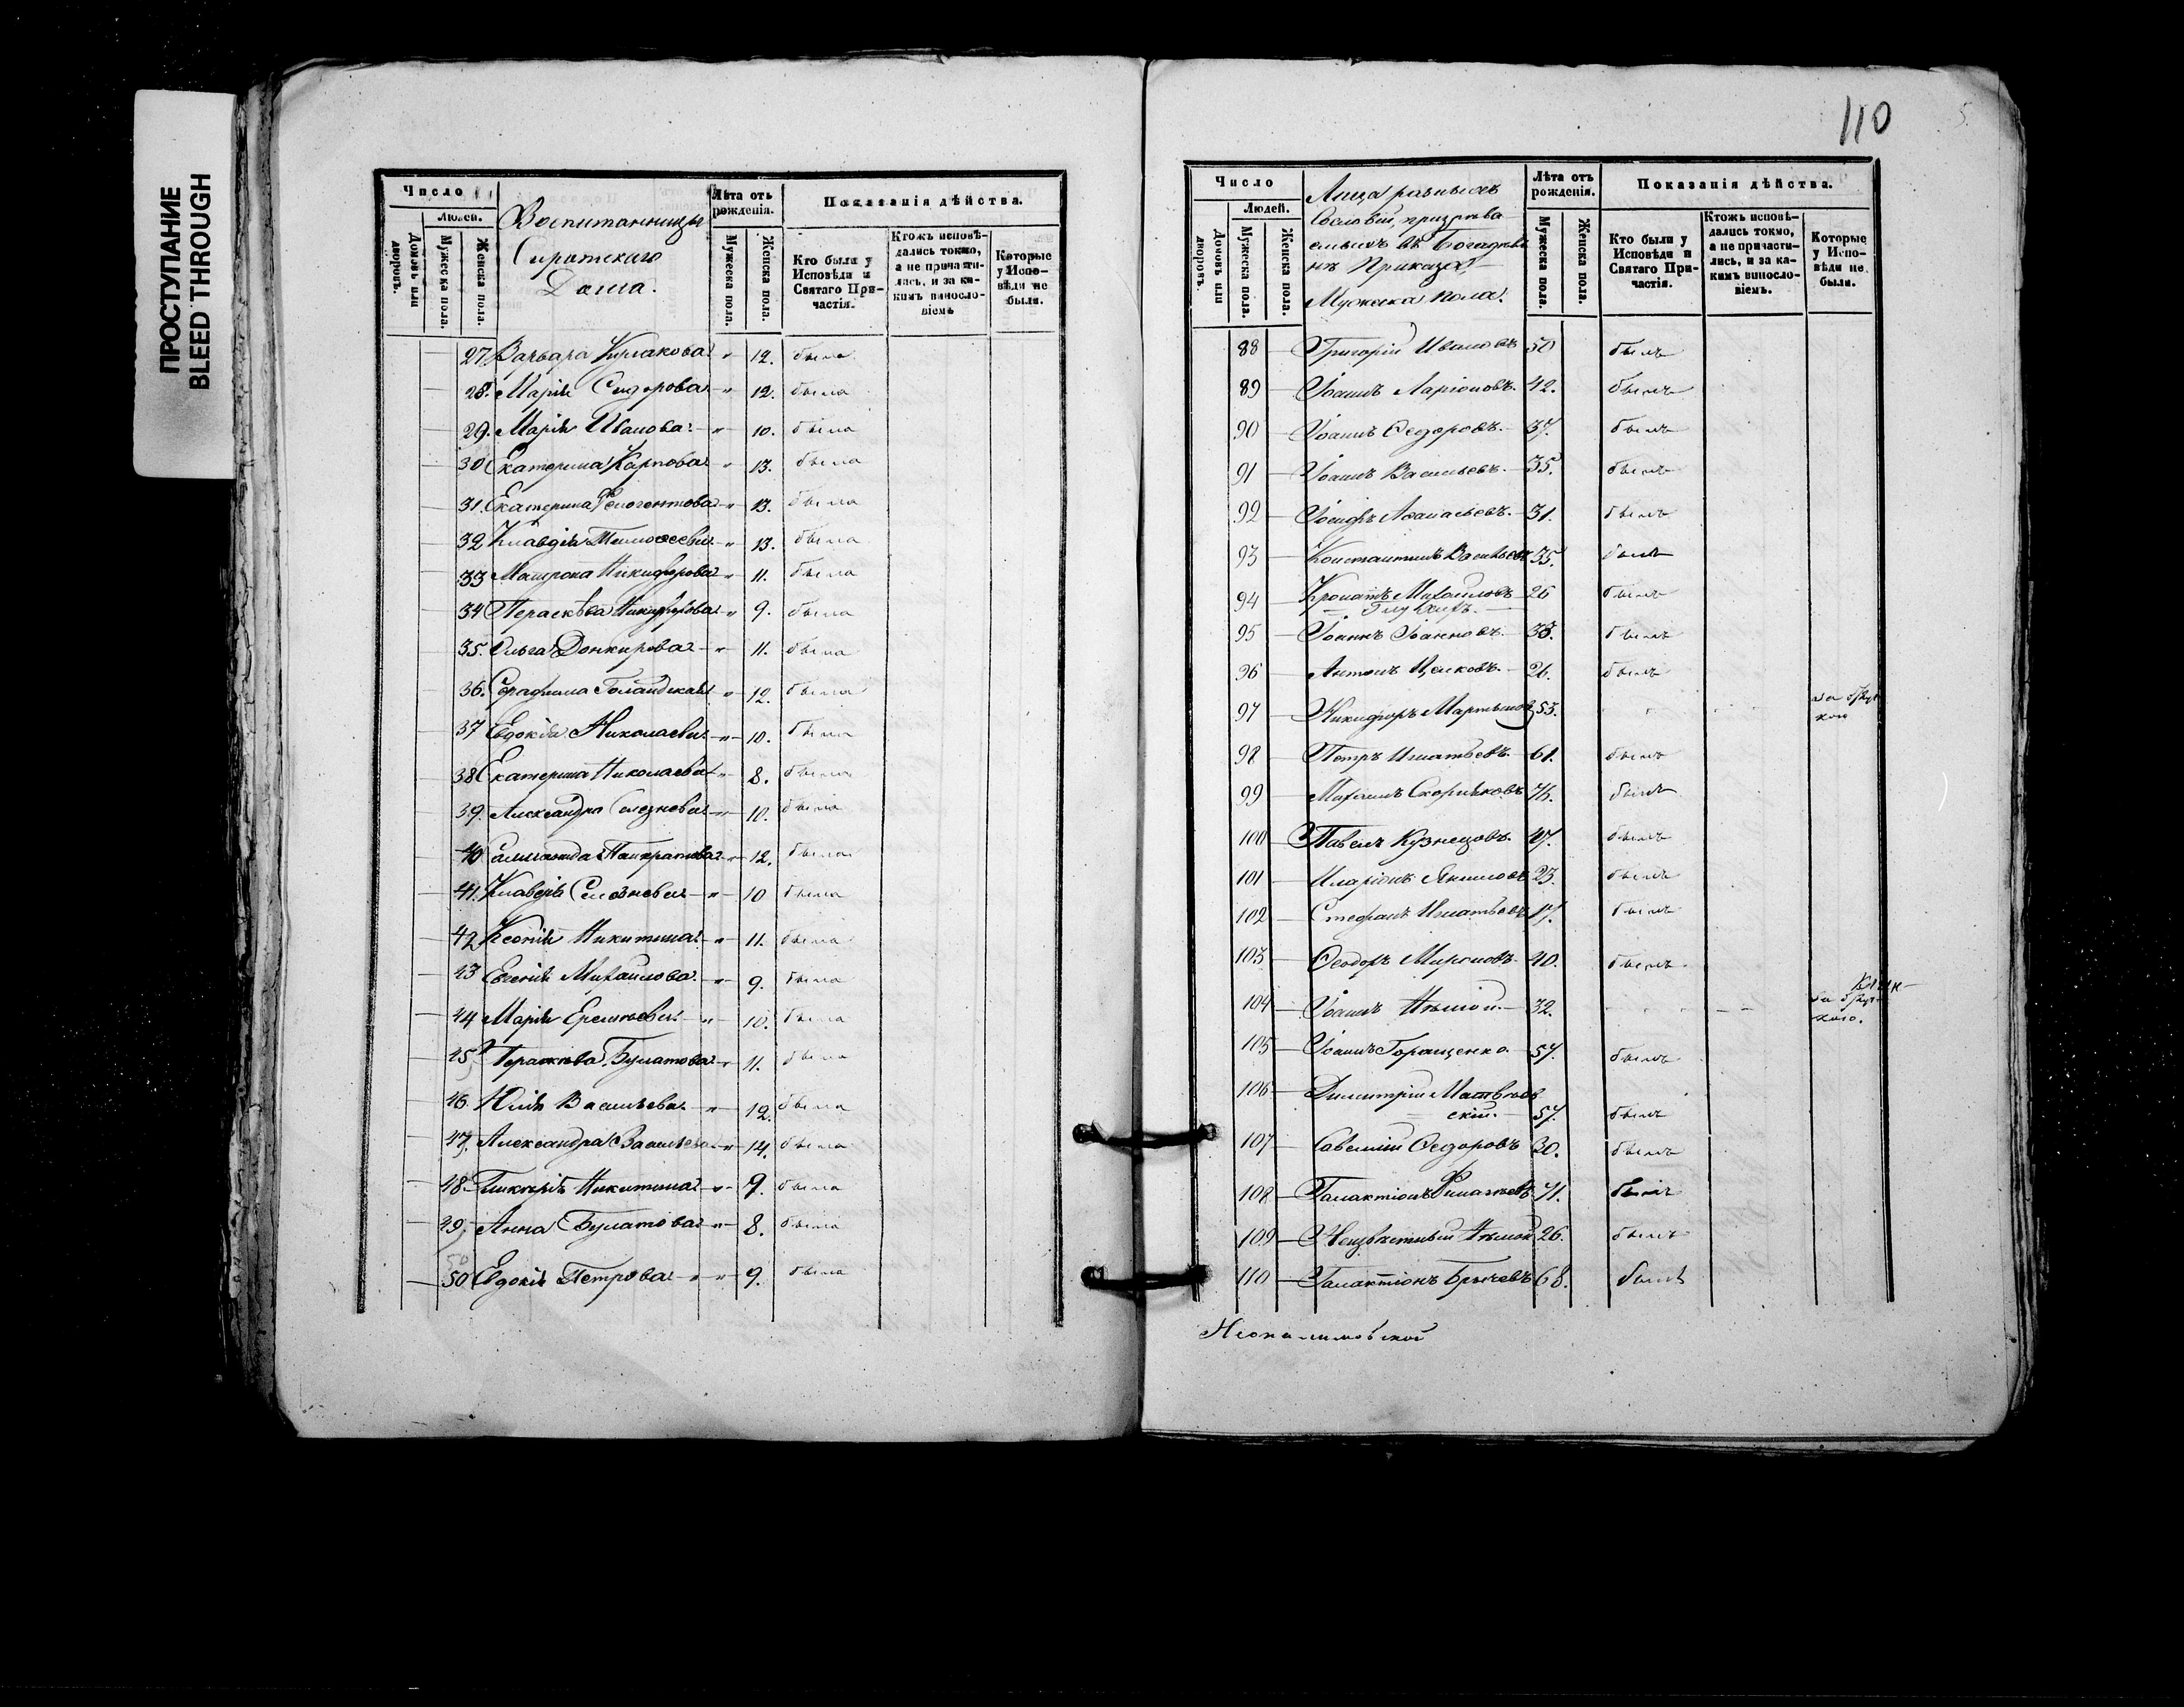 ПРОСТУПАНИЕ
BLEED THROUGH
Число
Людей.
Домовъ или дворовъ.
Мужеска пола.
Женска пола.
Воспитанницы
Сиротскаго
Дома.
Лѣта отъ рожденія.
Мужеска пола.
Женска пола.
Показанія дѣйства.
Кто были у Исповѣди и Святаго Причастія.
Ктожъ исповѣдались токмо, а не причастились, и за какимъ винословіемъ
Которые у Исповѣди не были.
27 Варвара 12. была
28. Марія Сидорова 12. была
29. Марія Иванова 10. была
30 Екатерина Карпова 13. была
31. Екатерина 13. была
32 Клавдія Тимоѳеева 13. была
33 Матрона Никифорова 11. была
34 Параскѣва Никифорова 9. была
35. Ольга 11. была
36. Серафима 12. была
37 Евдокія Николаева 10. была
38 Екатерина Николаева 8. была
39. Александра Селезнева 10. была
40 Панкратова 12. была
41. Клавдія Селезнева 10 была
42 Ксенія Никитина 11. была
43 Евгенія Михайлова 9. была
44 Марія Еремѣева 10. была
45 Параскѣва Булатова 11. была
46. Юлія Васильева 12. была
47. Александра Васильева 14. была
48. Гликерія Никитина 9. была
49. Анна Булатова 8. была
50 Евдокія Петрова 9. была
110
5.
Число
Людей.
Домовъ или дворовъ.
Мужеска пола.
Женска пола.
Лица разныхъ
Сословій, призрѣва
емыхъ въ Богадѣль
нѣ Приказа,
Мужеска пола.
Лѣта отъ рожденія.
Мужеска пола.
Женска пола.
Показанія дѣйства.
Кто были у Исповѣди и Святаго Причастія.
Ктожъ исповѣдались токмо, а не причастились, и за какимъ винословіемъ.
Которые у Исповѣди не были.
88 Григорій Ивановъ 50 былъ
89 Іоаннъ Ларіоновъ 42. былъ
90 Іоаннъ Ѳедоровъ 37. былъ
91 Іоаннъ Васильевъ 35. былъ
92 Іосифъ Аѳанасьевъ 31. былъ
93 Константинъ Васильевъ 35. былъ
94 Михайловъ 26 былъ
95 Іоаннъ Іоанновъ 33. былъ
96 Антонъ 26. былъ
97 Никифоръ Мартыновъ 53.
98 Петръ Игнатьевъ 61. былъ
99 Михаилъ Скорняковъ 76. былъ
100 Павелъ Кузнецовъ 47. былъ
101 Иларіонъ Якимовъ 23. былъ
102 Стефанъ Игнатьевъ 17. былъ
103 Ѳеодоръ Мироновъ 40. былъ
104 Іоаннъ Нѣмой 32.
105 Іоаннъ Геращенко 57. былъ
106 Димитрій Матвѣев
скій. 57. былъ
107 Савелій Ѳедоровъ 30. былъ
108 Галактіонъ 71. былъ
109 Неизвѣстный Нѣмой 26. былъ
110 Галактіонъ Брычевъ 68. былъ